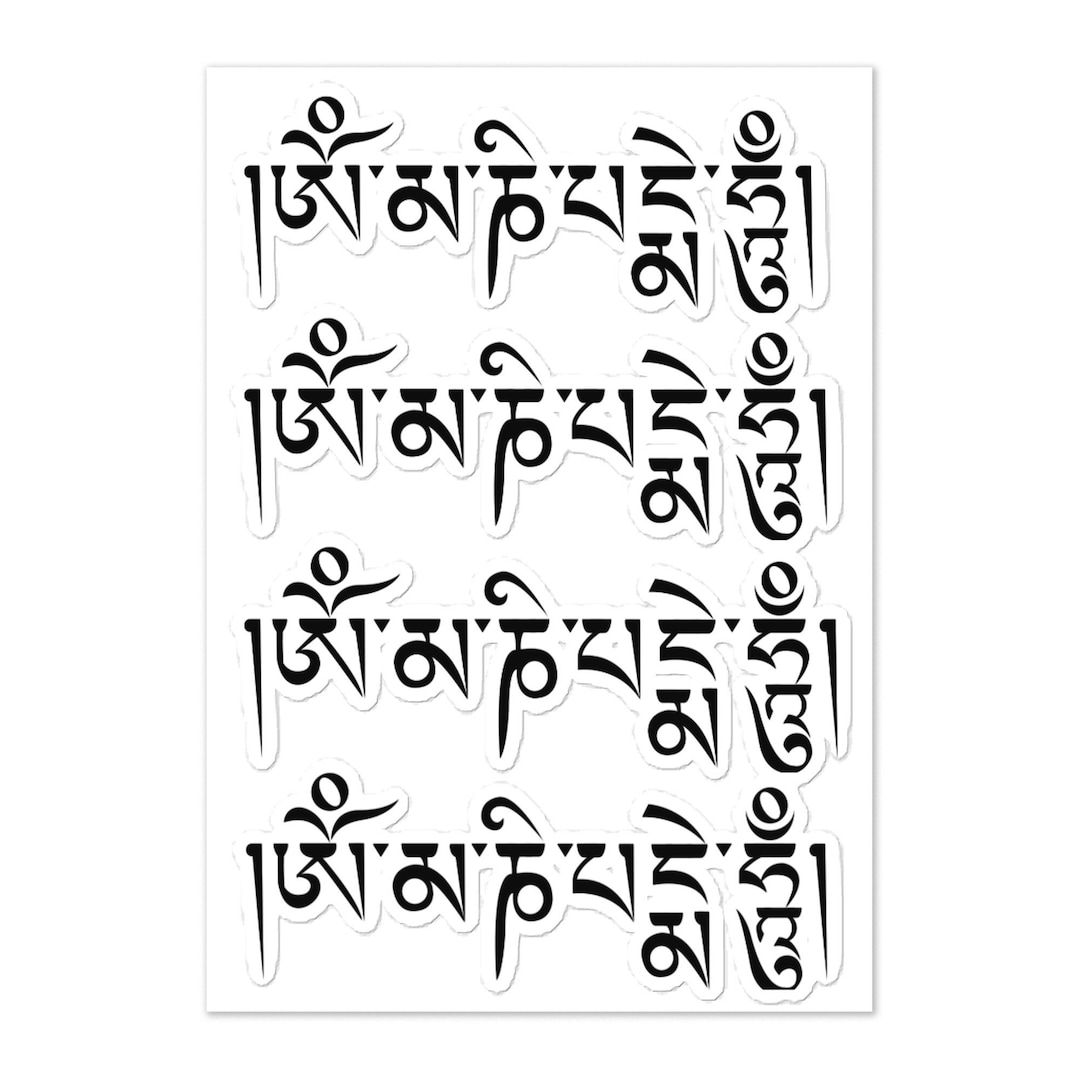 །ༀ་མ་ཎི་པ་དྨེ་ཧཱུྃ།
།ༀ་མ་ཎི་པ་དྨེ་ཧཱུྃ།
།ༀ་མ་ཎི་པ་དྨེ་ཧཱུྃ།
།ༀ་མ་ཎི་པ་དྨེ་ཧཱུྃ།